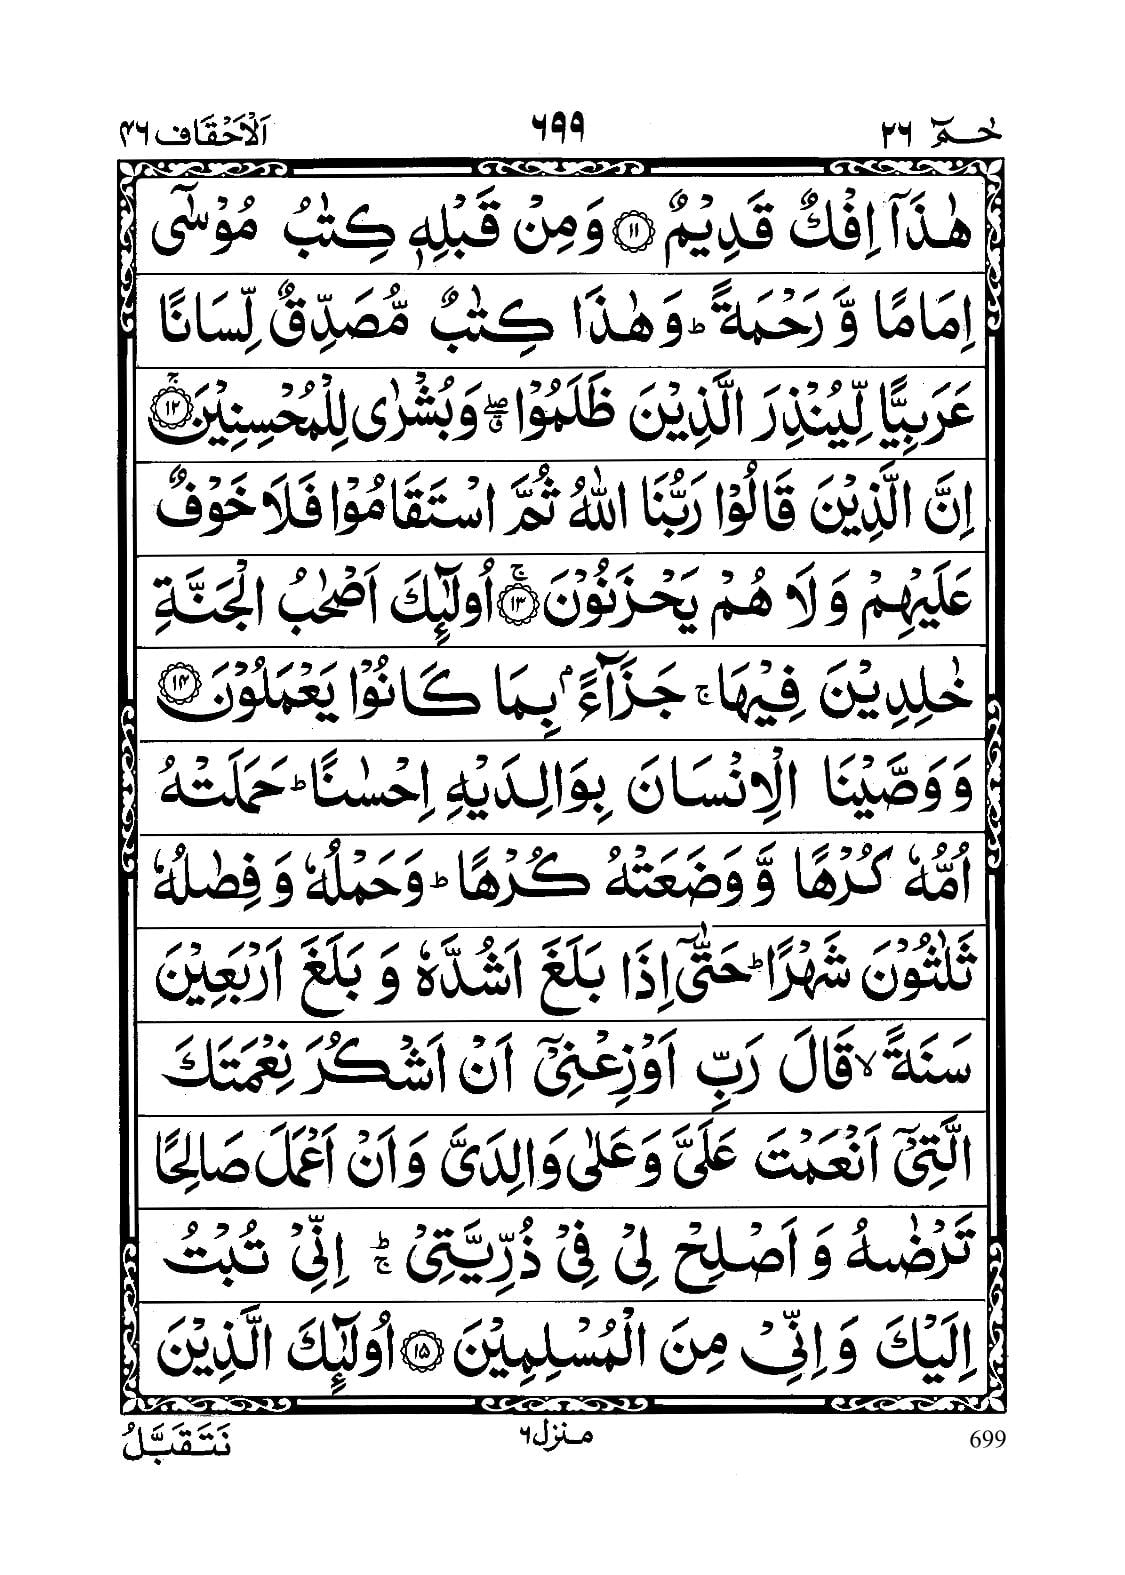 حٰمٓ ٢٦
٦٩٩
اَلْاَحْقَاف ٤٦
هٰذَاۤ اِفْكٌ قَدِيْمٌ ﴿١١﴾ وَمِنْ قَبْلِهٖ كِتٰبُ مُوْسٰۤى
اِمَامًا وَّ رَحْمَةً ؕ وَهٰذَا كِتٰبٌ مُّصَدِّقٌ لِّسَانًا
عَرَبِيًّا لِّيُنْذِرَ الَّذِيْنَ ظَلَمُوْا ۖۗ وَبُشْرٰى لِلْمُحْسِنِيْنَ ﴿١٢﴾ۚ
اِنَّ الَّذِيْنَ قَالُوْا رَبُّنَا اللّٰهُ ثُمَّ اسْتَقَامُوْا فَلَا خَوْفٌ
عَلَيْهِمْ وَلَا هُمْ يَحْزَنُوْنَ ﴿١٣﴾ۚ اُولٰٓئِكَ اَصْحٰبُ الْجَنَّةِ
خٰلِدِيْنَ فِيْهَا ۚ جَزَآءًۢ بِمَا كَانُوْا يَعْمَلُوْنَ ﴿١٤﴾
وَوَصَّيْنَا الْاِنْسَانَ بِوَالِدَيْهِ اِحْسٰنًا ؕ حَمَلَتْهُ
اُمُّهٗ كُرْهًا وَّ وَضَعَتْهُ كُرْهًا ؕ وَحَمْلُهٗ وَ فِصٰلُهٗ
ثَلٰثُوْنَ شَهْرًا ؕ حَتّٰۤى اِذَا بَلَغَ اَشُدَّهٗ وَ بَلَغَ اَرْبَعِيْنَ
سَنَةً ۙ قَالَ رَبِّ اَوْزِعْنِيْۤ اَنْ اَشْكُرَ نِعْمَتَكَ
الَّتِيْۤ اَنْعَمْتَ عَلَيَّ وَعَلٰى وَالِدَيَّ وَاَنْ اَعْمَلَ صَالِحًا
تَرْضٰىهُ وَ اَصْلِحْ لِيْ فِيْ ذُرِّيَّتِيْ ؕۚ اِنِّيْ تُبْتُ
اِلَيْكَ وَ اِنِّيْ مِنَ الْمُسْلِمِيْنَ ﴿١٥﴾ اُولٰٓئِكَ الَّذِيْنَ
نَتَقَبَّلُ
منزل ٦
699